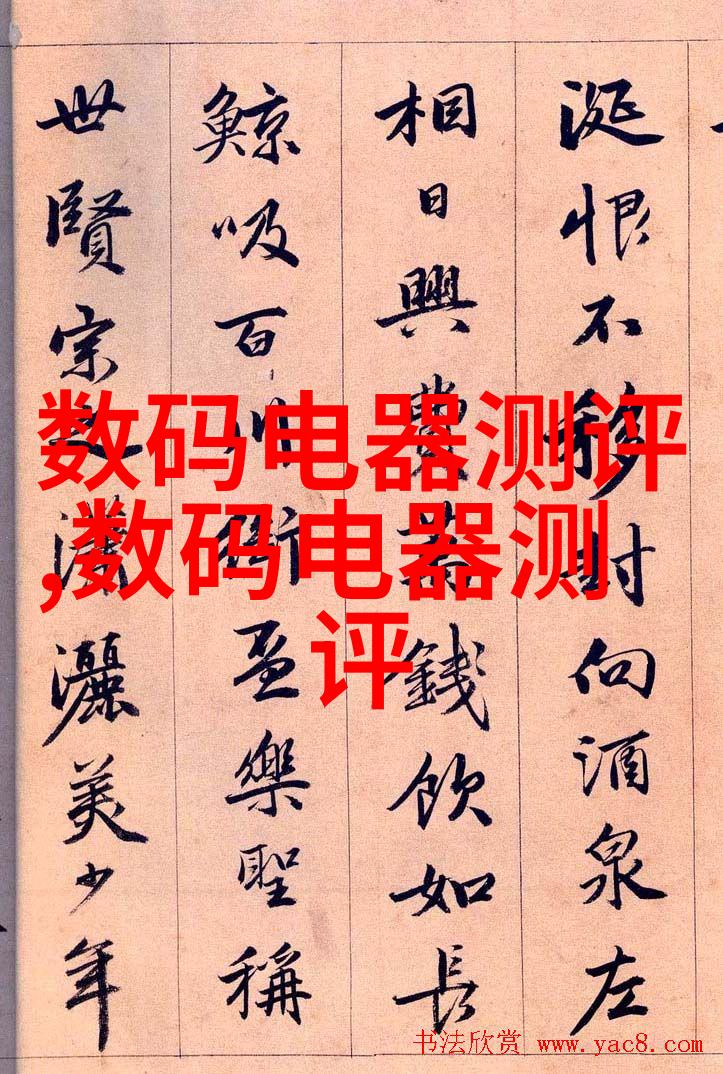 涎恨不移封向酒泉左
相日興費萬錢飲如長
鯨吸百川銜盃樂聖稱
世賢宗之瀟灑美少年
数码电器测评
,数码电器测
评
书法欣赏 www.yac8.com